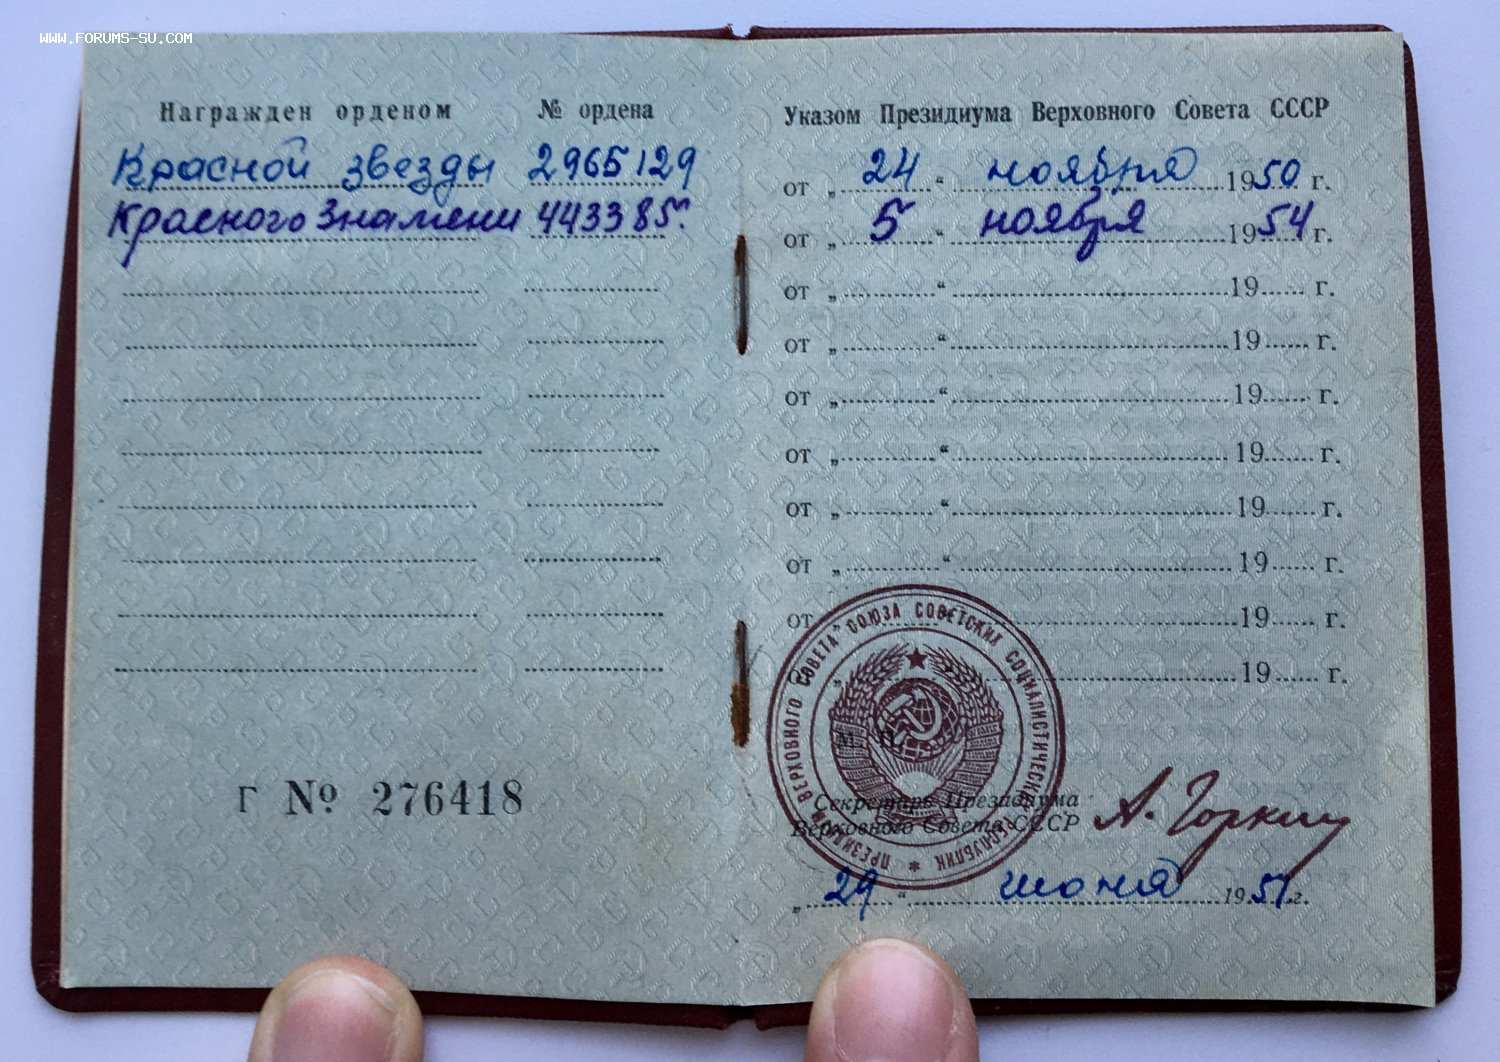 WWW.FORUMS-SU.COM
Награжден орденом № ордена
Красной звезды 2965129
Красного Знамени 443385.
Г № 276418
Указом Президиума Верховного Совета СССР
от „ 24 “ ноября 1950 г.
от „ 5 “ ноября 1954 г.
от „ “ 19 г.
от „ “ 19 г.
от „ “ 19 г.
от „ “ 19 г.
от „ “ 19 г.
от „ “ 19 г.
от „ “ 19 г.
„ “ 19 г.
ПРЕЗИДИУМ ВЕРХОВНОГО СОВЕТА СОЮЗА СОВЕТСКИХ СОЦИАЛИСТИЧЕСКИХ РЕСПУБЛИК *
М. П.
Секретарь Президиума
Верховного Совета СССР
А. Горкин
„ 29 “ июня 1951 г.